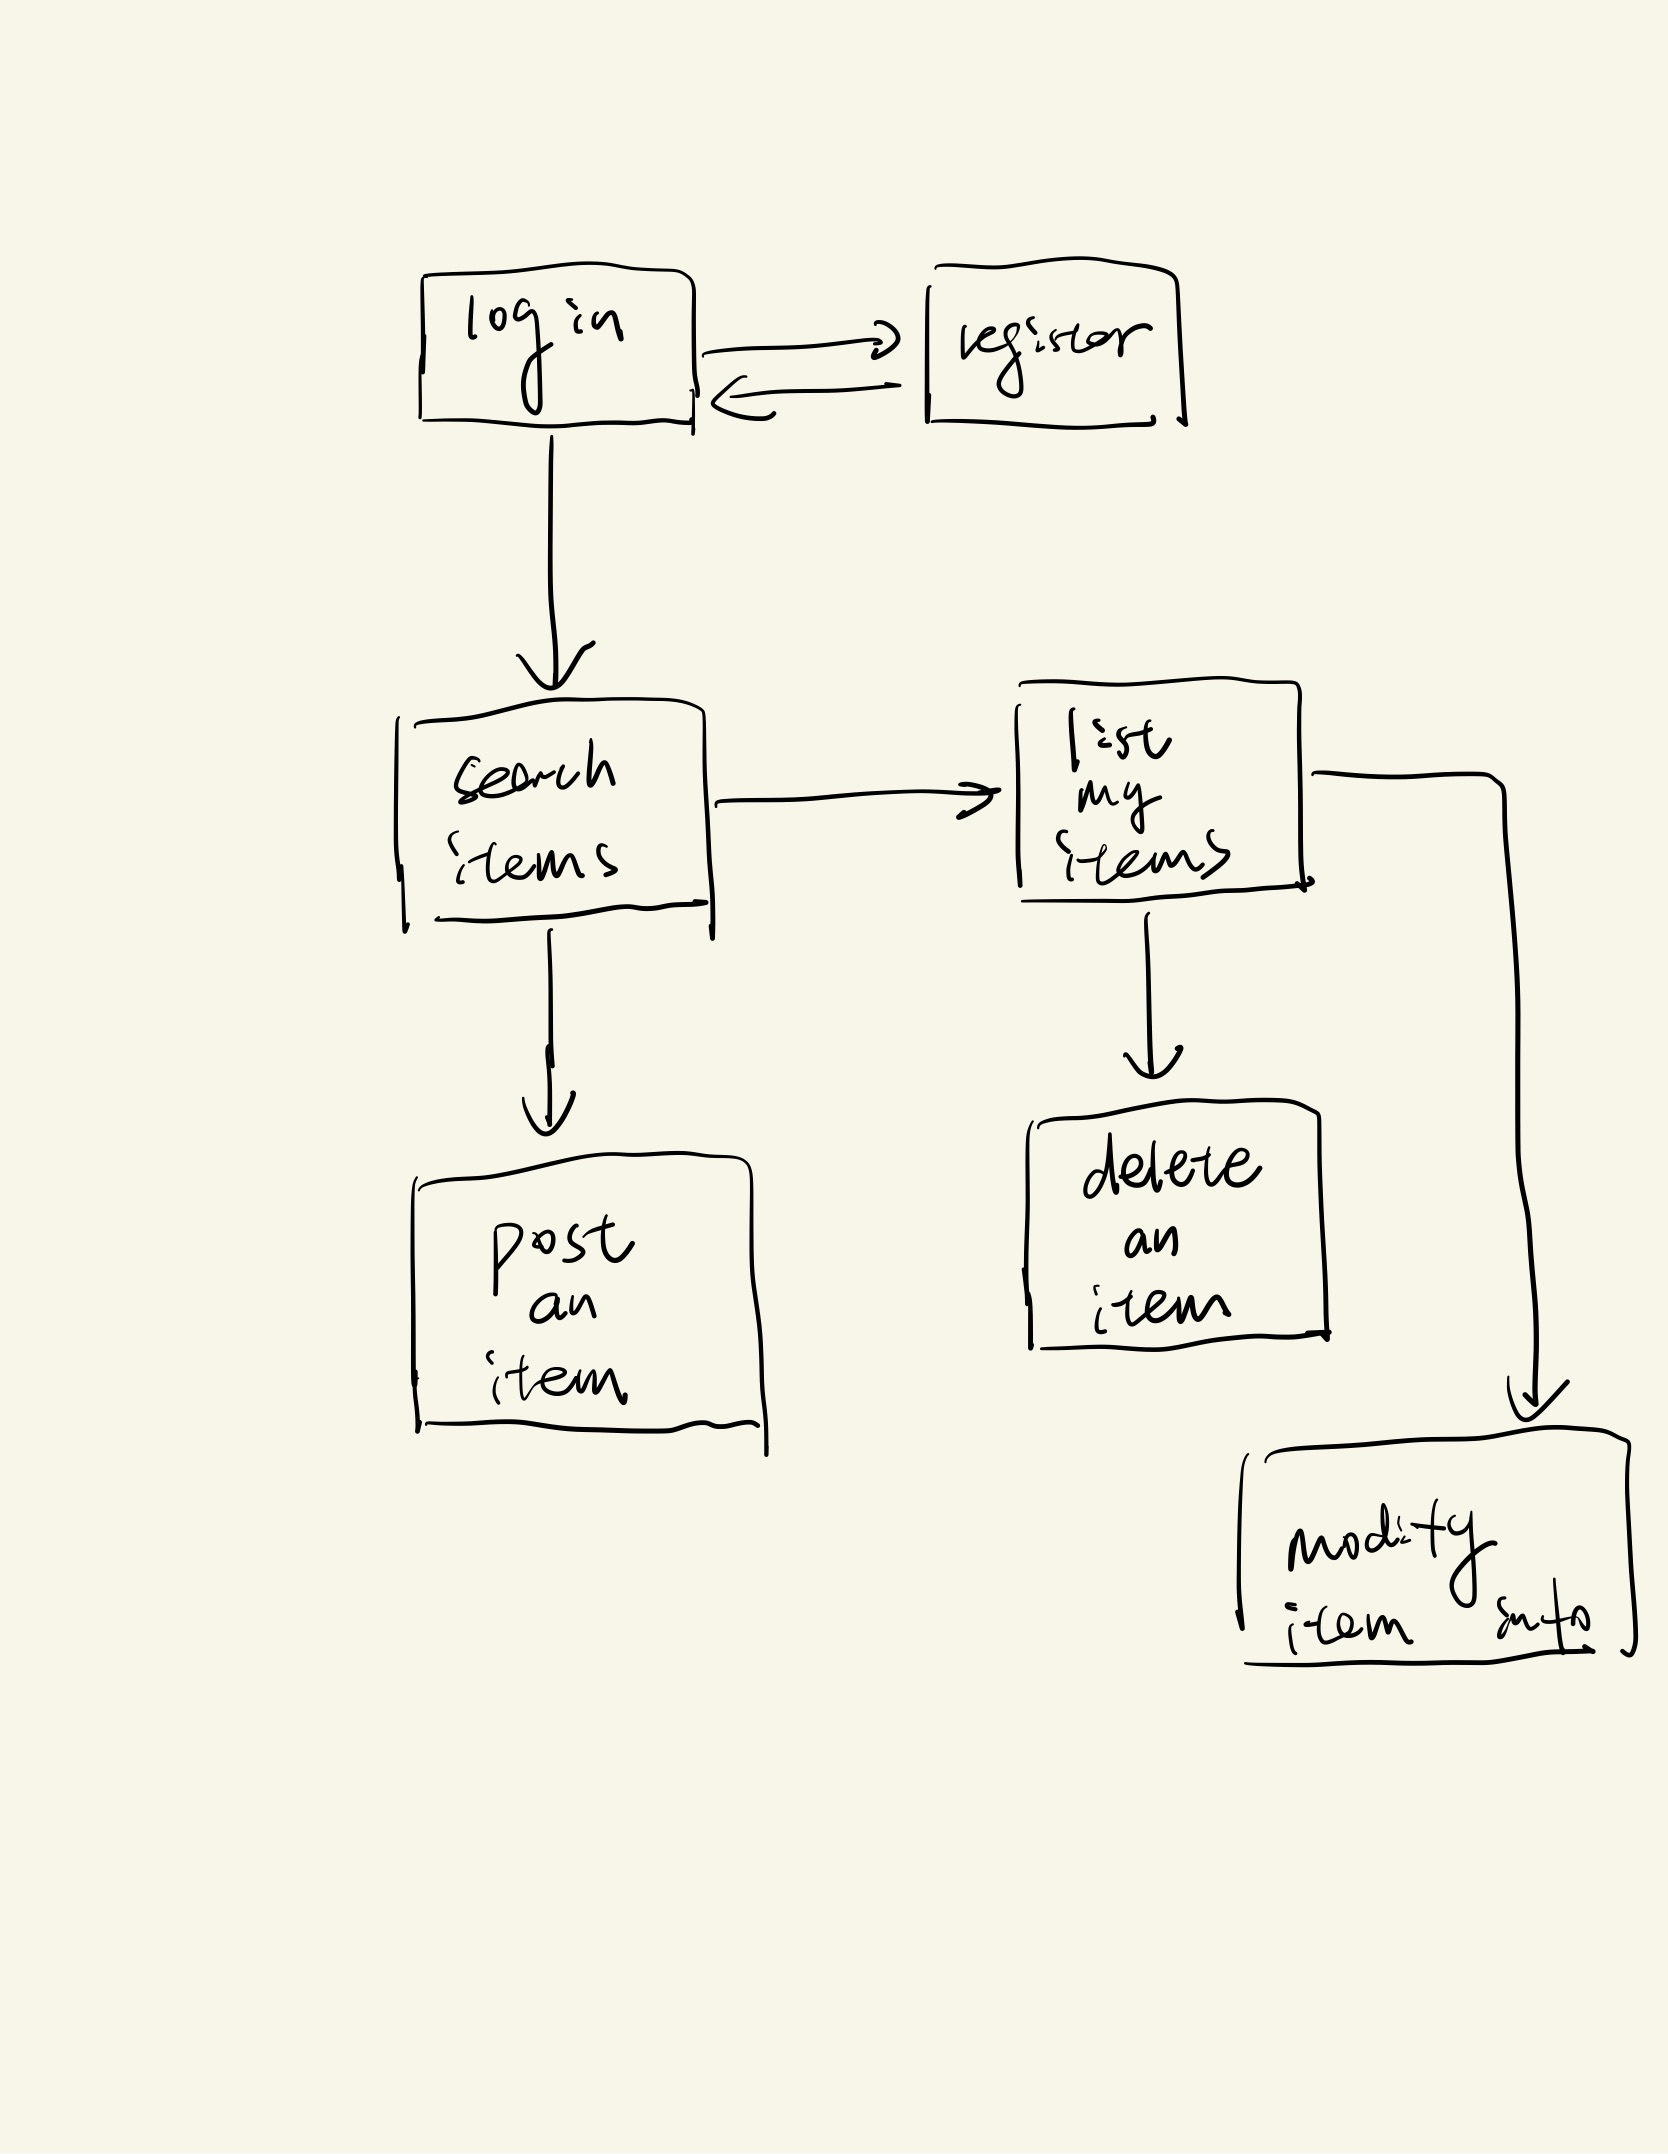 log in
register
search
items
list
my
items
post
an
item
delete
an
item
modify
item info